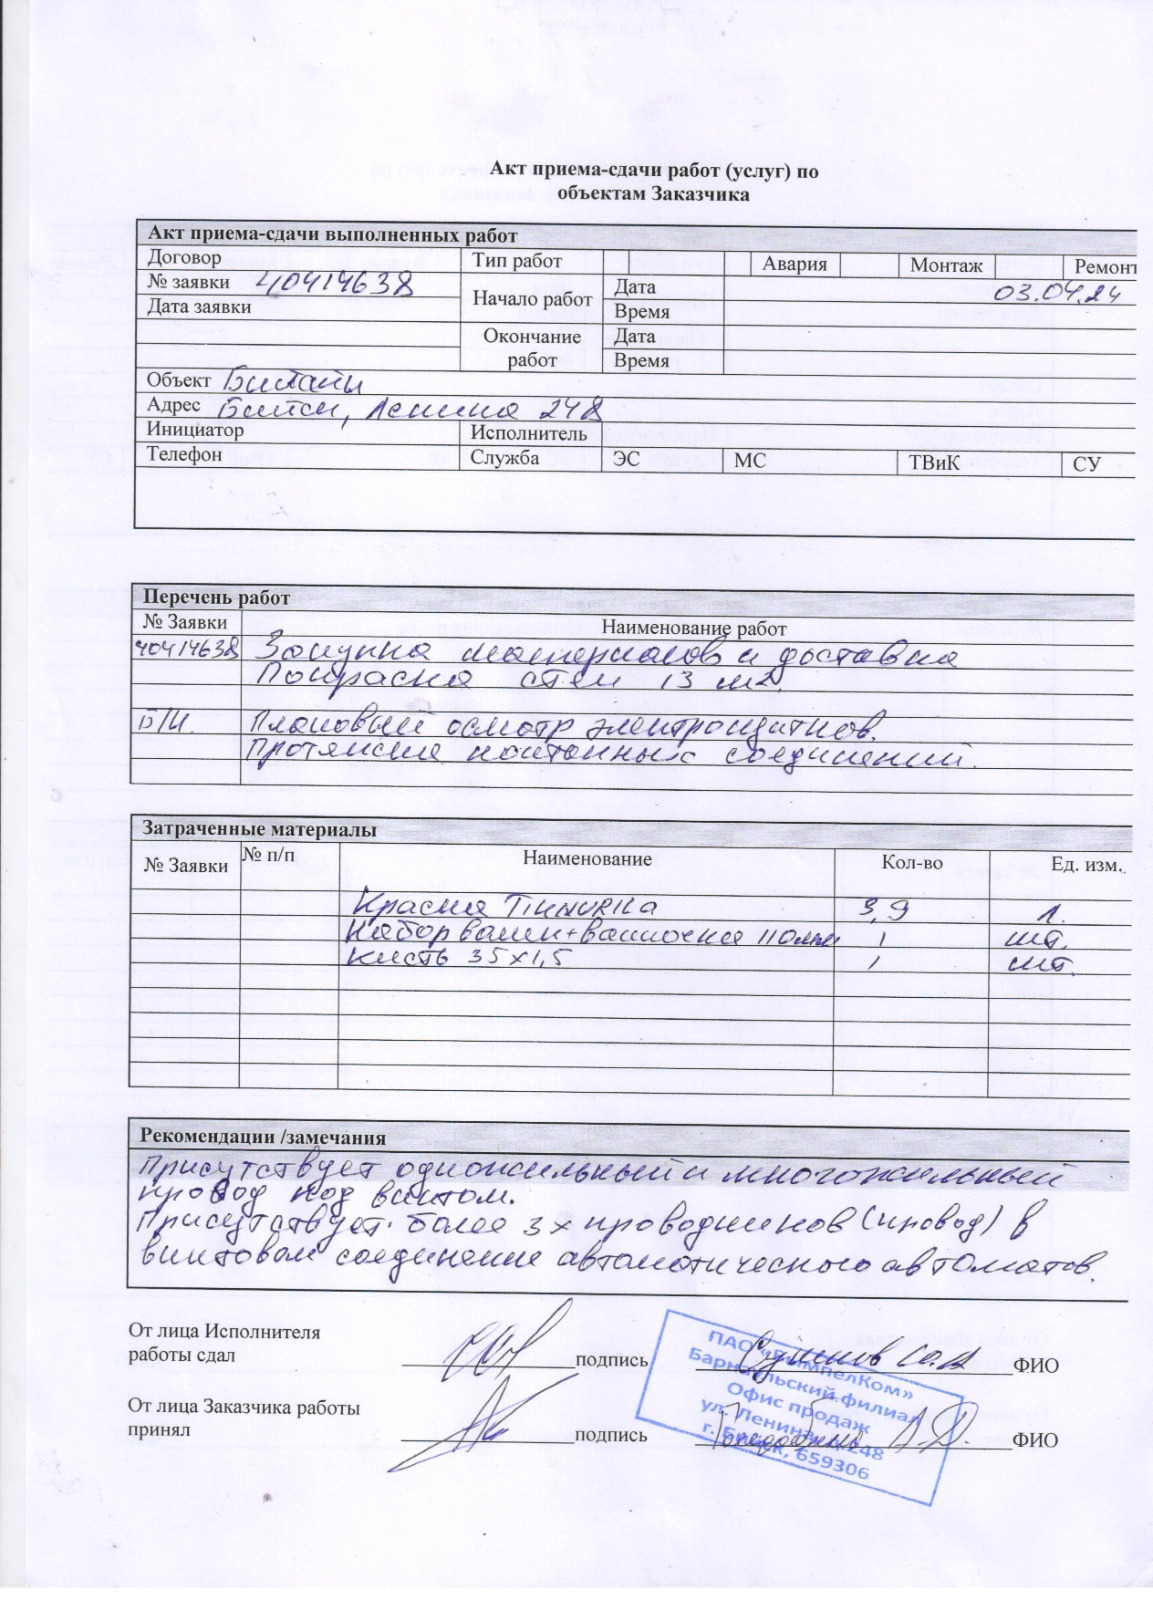 Акт приема-сдачи работ (услуг) по
объектам Заказчика
Акт приема-сдачи выполненных работ
Договор Тип работ Авария Монтаж Ремонт
№ заявки 40414638 Начало работ Дата 03.04.24
Дата заявки Время
Окончание работ Дата
Время
Объект Билайн
Адрес Бийск, Ленина 248
Инициатор Исполнитель
Телефон Служба ЭС МС ТВиК СУ
Перечень работ
№ Заявки Наименование работ
40414638 Закупка материалов и доставка
Покраска стен 13 м2.
П/П. Плановый осмотр электрощитков.
Протяжка контактных соединений.
Затраченные материалы
№ Заявки № п/п Наименование Кол-во Ед. изм.
Краска TIKKURILA 3,9 л.
Набор валик+ванночка 110мм 1 шт.
Кисть 35х1,5 1 шт.
Рекомендации /замечания
Присутствует одножильный и многожильный
провод под винтом.
Присутствует более 3х проводников (провод) в
винтовом соединение автоматического автоматов.
От лица Исполнителя
работы сдал подпись ФИО
От лица Заказчика работы
принял подпись А.Д. ФИО
ПАО «ВымпелКом»
Барнаульский филиал
Офис продаж
ул. Ленина, д.248
г. Бийск, 659306